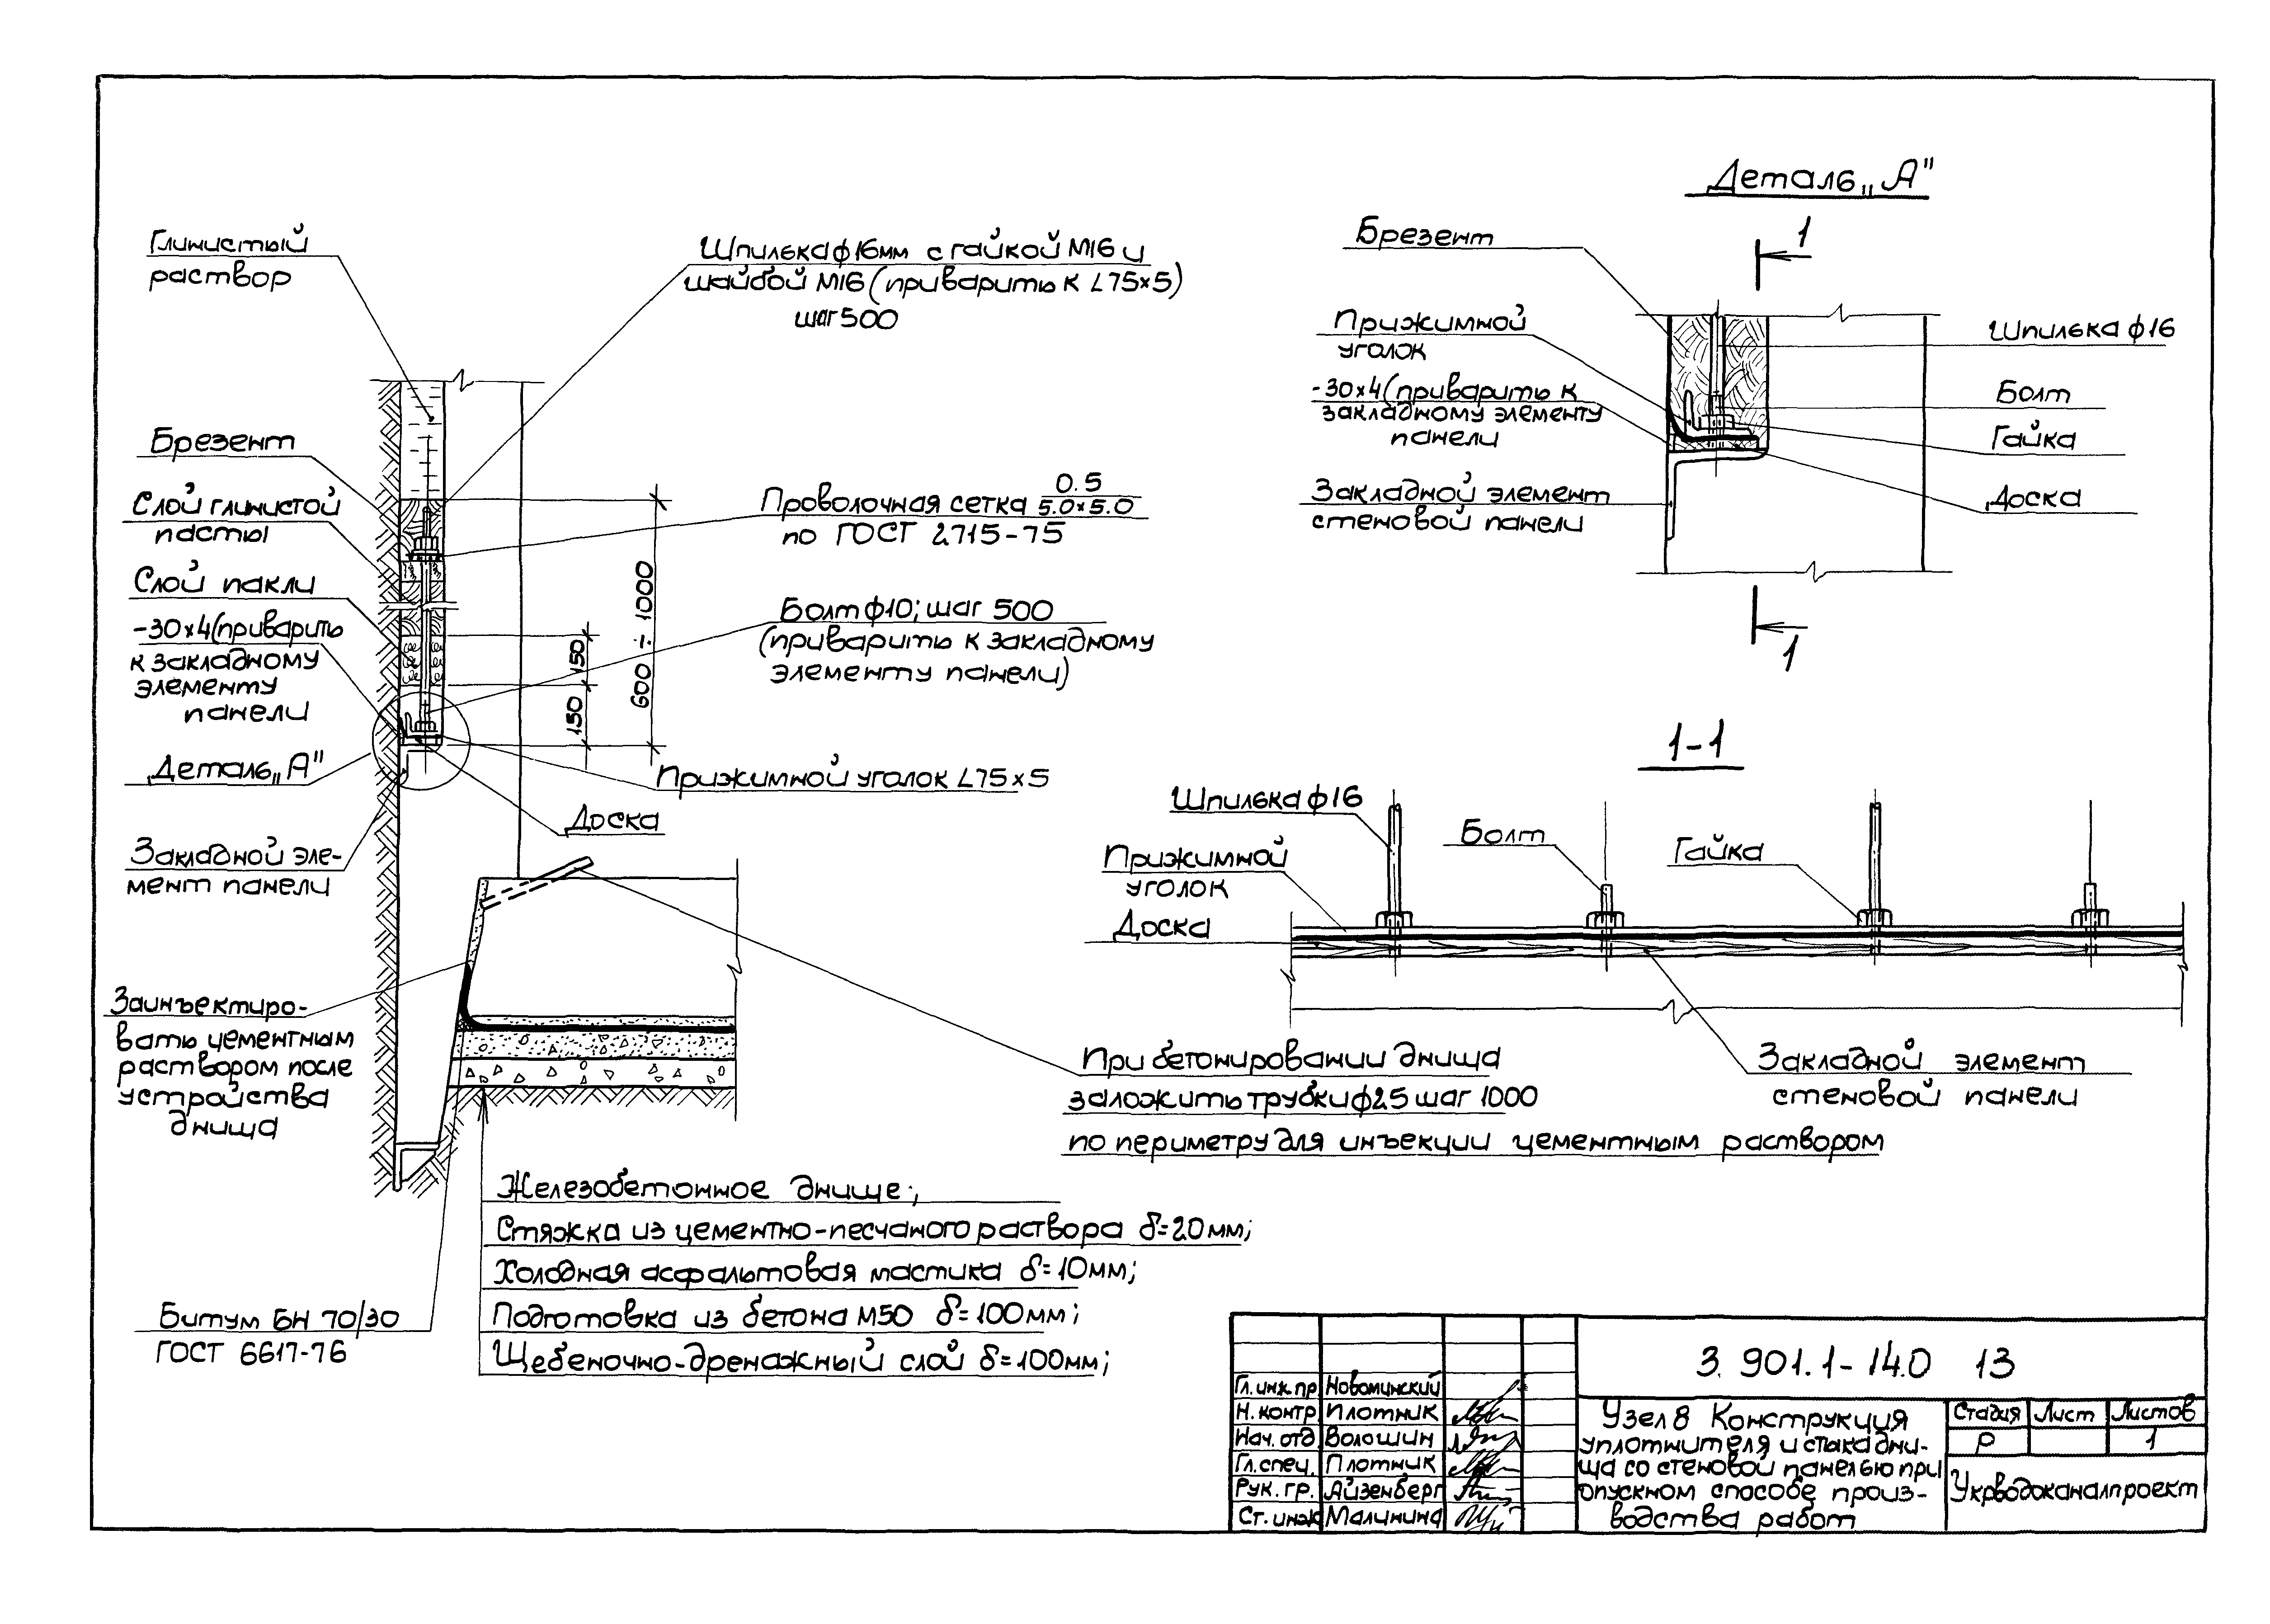 Глинистый
раствор
Брезент
Слой глинистой
пасты
Слой пакли
-30×4(приварить
к закладному
элементу
панели
Деталь „А"
Закладной эле-
мент панели
Заинъектиро-
вать цементным
раствором после
устройства
днища
Битум БН 70/30
ГОСТ 6617-76
Шпилька ф16мм с гайкой М16 и
шайбой М16 (приварить к L75×5)
шаг 500
Проволочная сетка 0.5
5.0×5.0
по ГОСТ 2715-75
Болт ф10; шаг 500
(приварить к закладному
элементу панели)
600 ÷ 1000
150
150
Прижимной уголок L75×5
Доска
При бетонировании днища
заложить трубки ф25 шаг 1000
по периметру для инъекции цементным раствором
Железобетонное днище;
Стяжка из цементно-песчаного раствора δ=20мм;
Холодная асфальтовая мастика δ=10мм;
Подготовка из бетона М50 δ=100мм;
Щебеночно-дренажный слой δ=100мм;
Деталь „А"
1
Брезент
Прижимной
уголок
-30×4(приварить к
закладному элементу
панели
Закладной элемент
стеновой панели
Шпилька ф16
Болт
Гайка
Доска
1
1-1
Шпилька ф16
Прижимной
уголок
Доска
Болт
Гайка
Закладной элемент
стеновой панели
3. 901.1-14.0 13
Гл. инж.пр. Новоминский
Н. контр. Плотник
Нач. отд. Волошин
Гл. спец. Плотник
Рук. гр. Айзенберг
Ст. инж. Малинина
Узел 8 Конструкция
уплотнителя и стыка дни-
ща со стеновой панелью при
опускном способе произ-
водства работ
Стадия Лист Листов
Р 1
Укрводоканалпроект